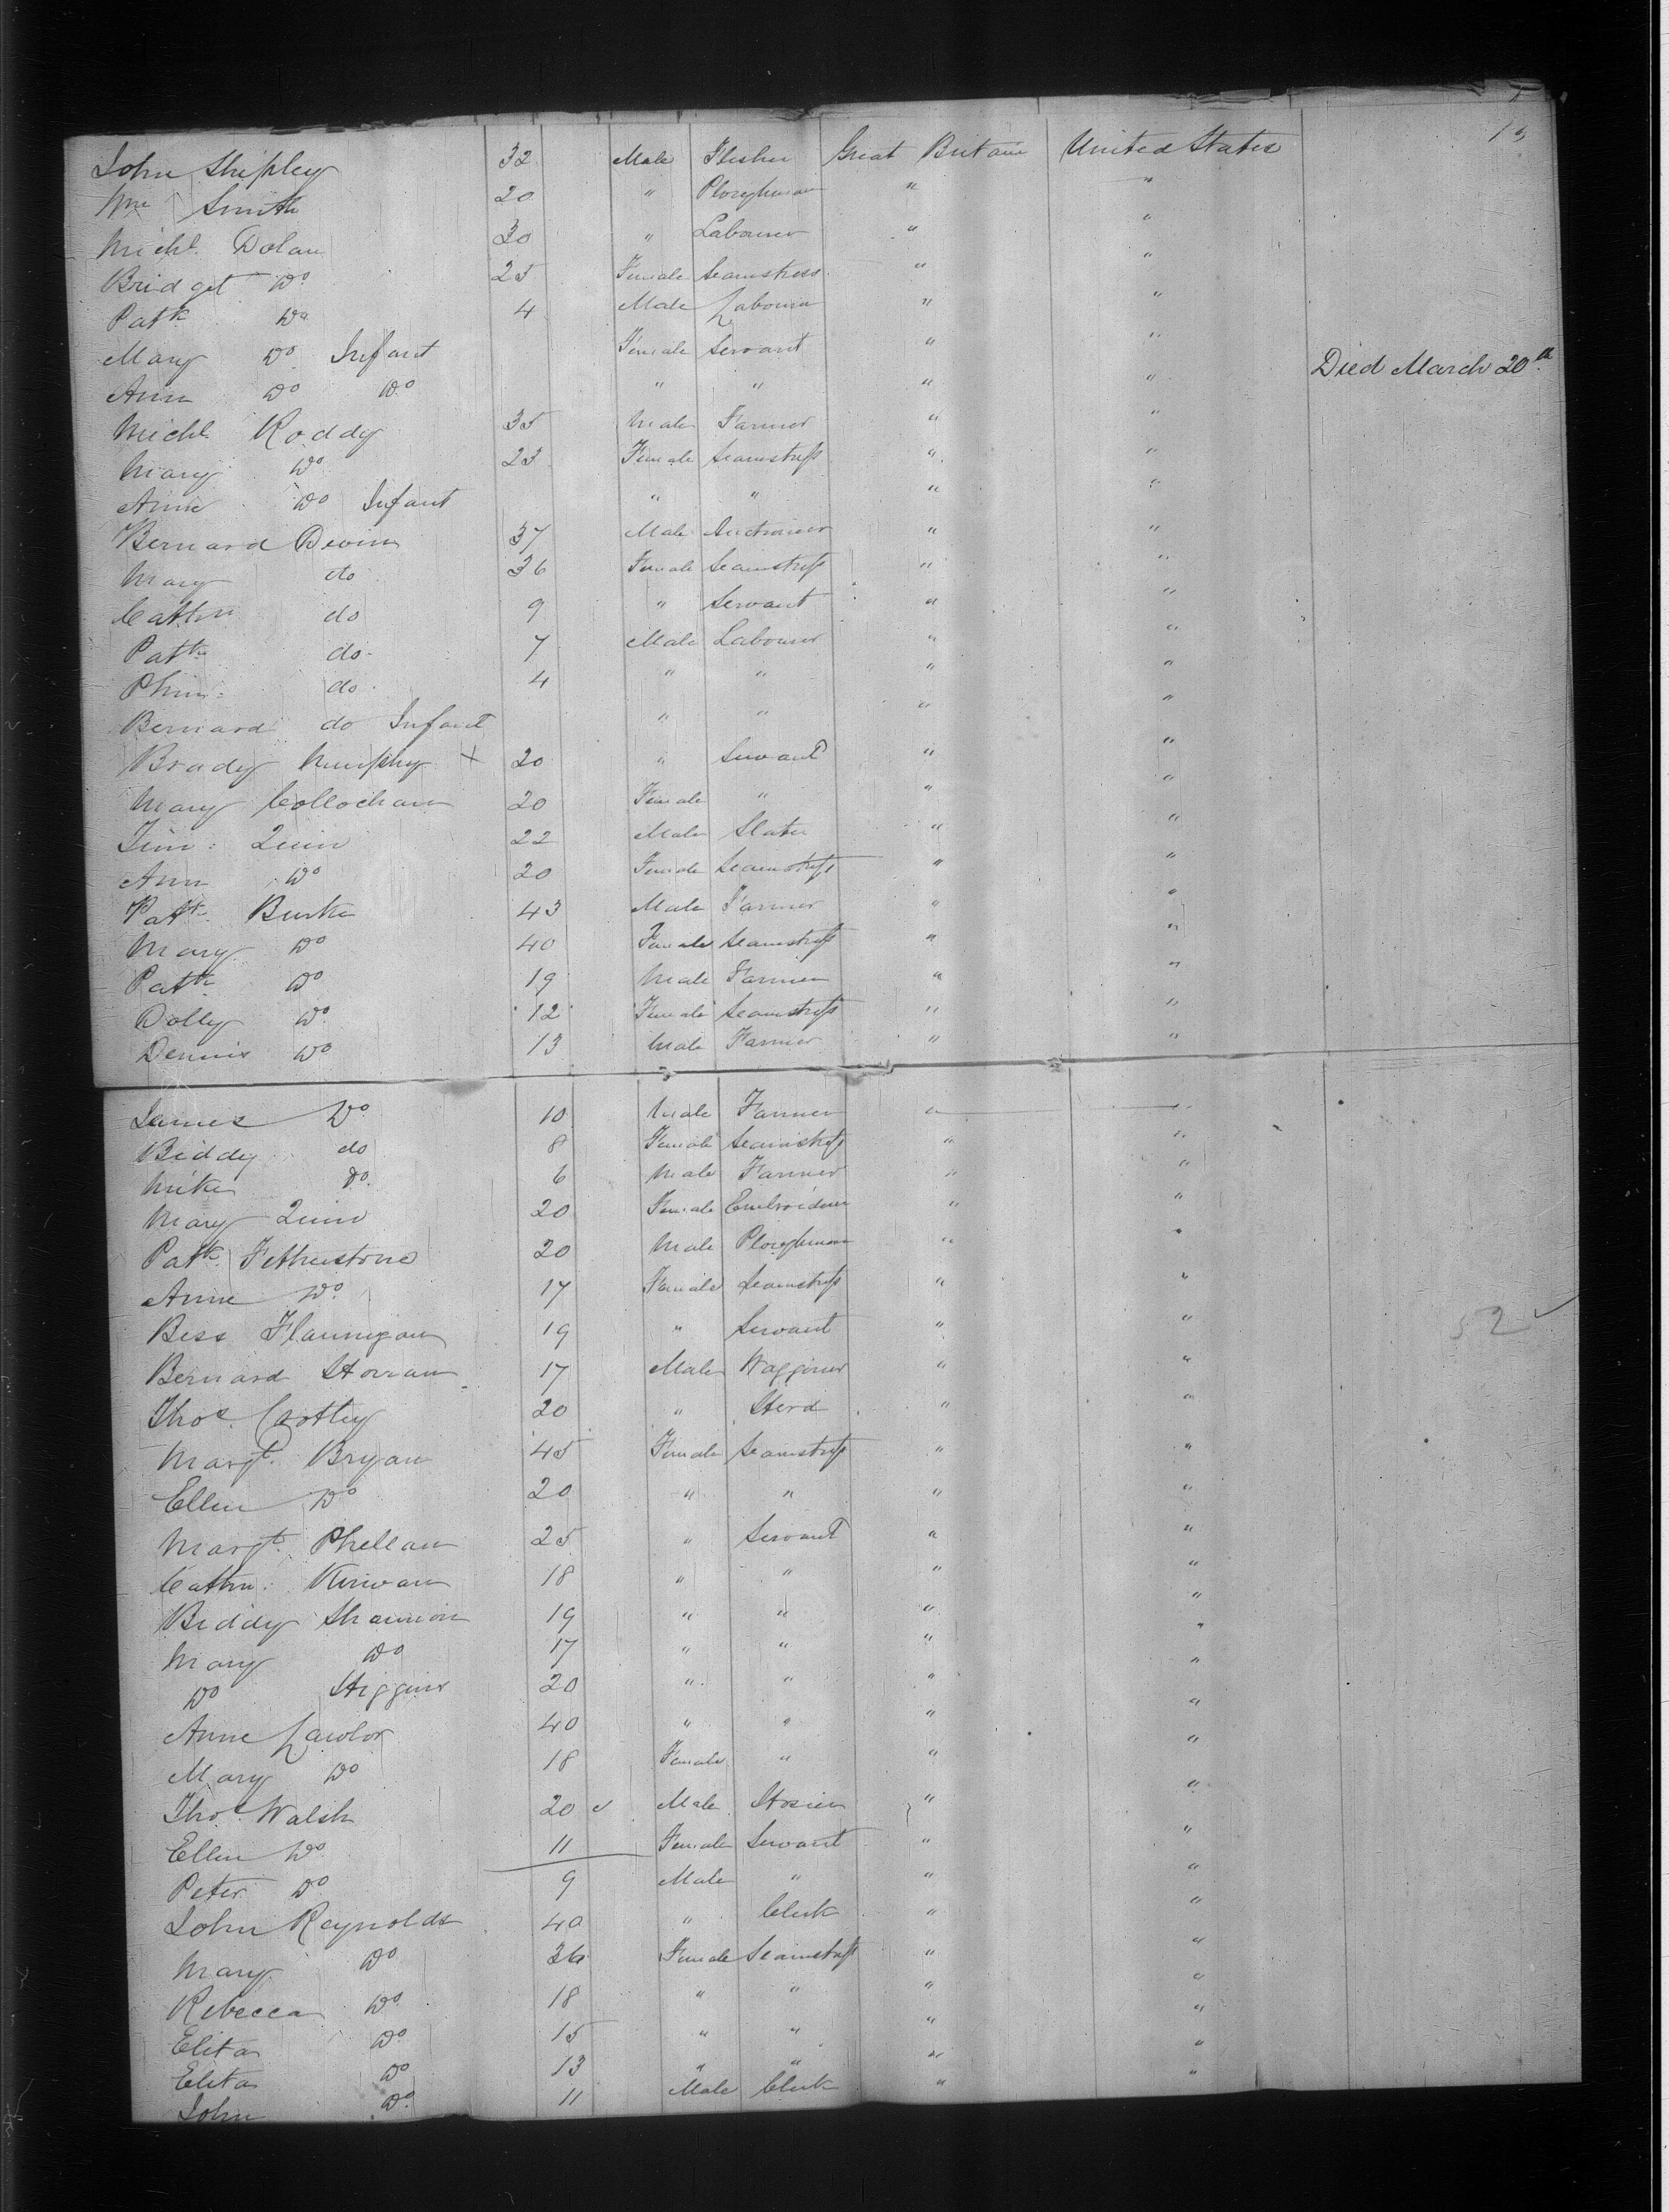 13
John Shipley 32 Male Flesher Great Britain United States
Wm Smith 20 " Ploughman " "
Michl. Dolan 30 " Labourer " "
Bridget Do 25 Female Seamstress " "
Patk Do 4 Male Labourer " "
Mary Do Infant Female Servant " "
Ann Do Do " " " " Died March 20th
Michl Roddy 35 Male Farmer " "
Mary Do 23 Female Seamstress " "
Anne Do Infant " " " "
Bernard Devine 37 Male Auctioneer " "
Mary do 36 Female Seamstress " "
Cathn do 9 " Servant " "
Patk do 7 Male Labourer " "
do 4 " " " "
Bernard do Infant " " " "
Brady Murphy + 20 " Servant " "
Mary 20 Female " " "
Tim: Quin 22 Male Slater " "
Ann Do 20 Female Seamstress " "
Patk Burke 43 Male Farmer " "
Mary Do 40 Female Seamstress " "
Patk Do 19 Male Farmer " "
Dolly Do 12 Female Seamstress " "
Dennis Do 13 Male Farmer " "
James Do 10 Male Farmer " "
Biddy do 8 Female Seamstress " "
Mike Do 6 Male Farmer " "
Mary Quin 20 Female Embroiderer " "
Patk Fetherstone 20 Male Ploughman " "
Anne Do 17 Female Seamstress " "
Bess Flannigan 19 " Servant " " 52 ✓
Bernard Horran 17 Male Waggoner " "
Thos. Crotty 20 " Herd " "
Margt. Bryan 45 Female Seamstress " "
Ellen Do 20 " " " "
Margt. Phelan 25 " Servant " "
Cathn. Kirwan 18 " " " "
Biddy Shannon 19 " " " "
Mary Do 17 " " " "
Do Higgins 20 " " " "
Anne Lawlor 40 " " " "
Mary Do 18 Female " " "
Thos Walsh 20 ✓ Male Hosier " "
Ellen Do 11 Female Servant " "
Peter Do 9 Male " " "
John Reynolds 40 " Clerk " "
Mary Do 36 Female Seamstress " "
Rebecca Do 18 " " " "
Eliza Do 15 " " " "
Eliza Do 13 " " " "
John Do 11 Male Clerk " "